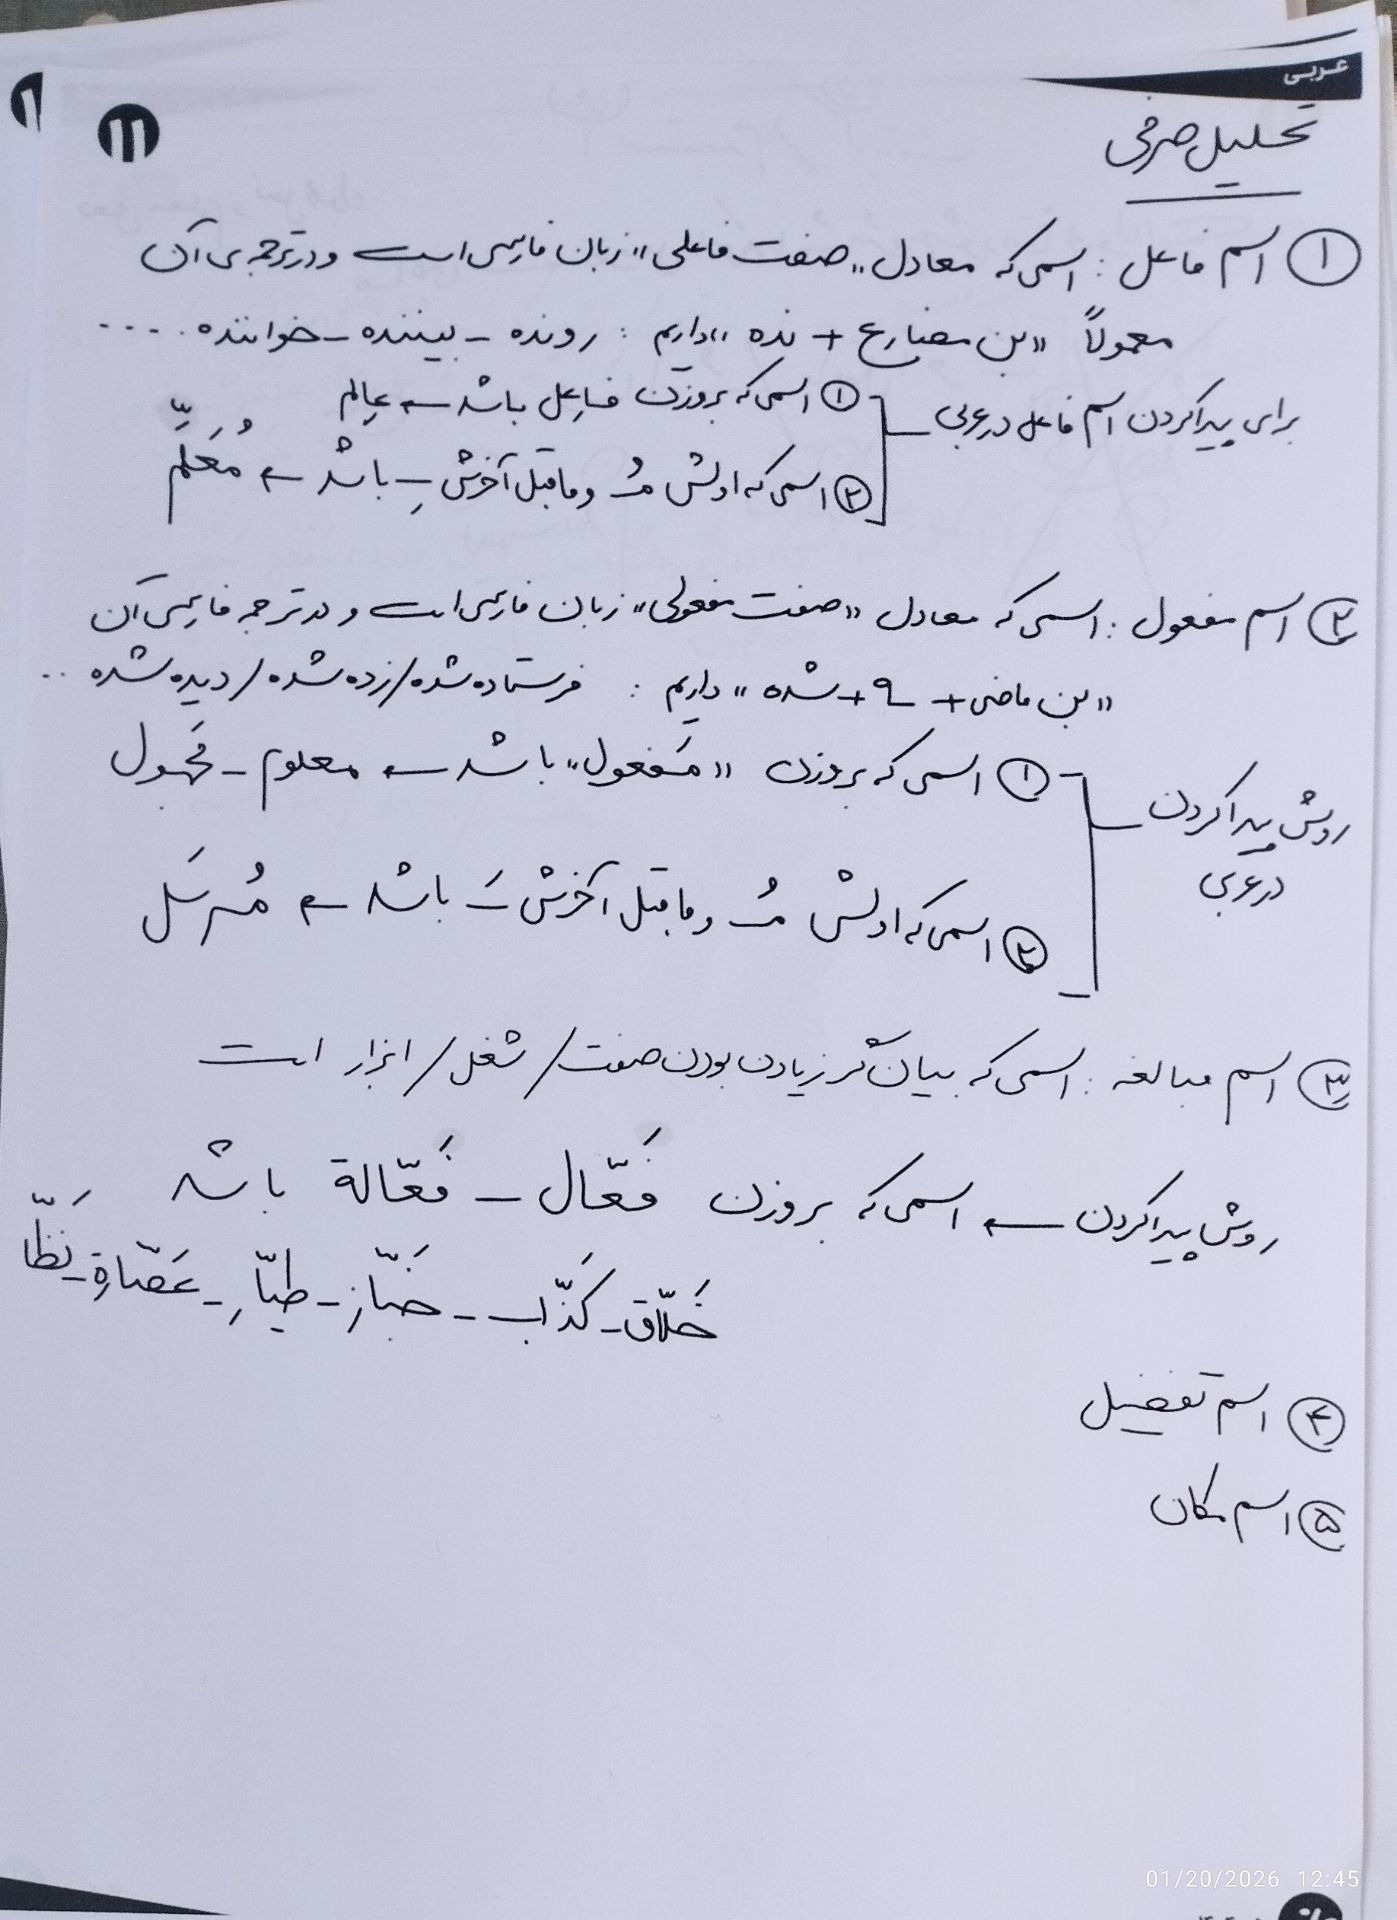 عربی
تحلیل صرفی
① اسم فاعل : اسمی که معادل «صفت فاعلی» زبان فارسی است و در ترجمه‌ی آن
معمولاً «بن مضارع + نده» داریم : رونده - بیننده - خواننده ....
برای پیدا کردن اسم فاعل در عربی
① اسمی که بر وزن فاعِل باشد ← عالِم
② اسمی که اولش مُـ و ماقبل آخرش ـِ باشد ← مُعَلِّم
② اسم مفعول : اسمی که معادل «صفت مفعولی» زبان فارسی است و در ترجمه فارسی آن
«بن ماضی + ه + شده» داریم : فرستاده شده / زده شده / دیده شده ..
روش پیدا کردن
در عربی
① اسمی که بر وزن «مَفعول» باشد ← معلوم - مَجهول
② اسمی که اولش مُـ و ماقبل آخرش ـَ باشد ← مُرسَل
③ اسم مبالغه : اسمی که بیان گر زیادن بودن صفت / شغل / ابزار است
روش پیدا کردن ← اسمی که بر وزن فَعّال - فَعّالة باشد
خَلّاق - کَذّاب - خَبّاز - طیّار - عَصّارة - نَظّا
④ اسم تفضیل
⑤ اسم مکان
01/20/2026 12:45